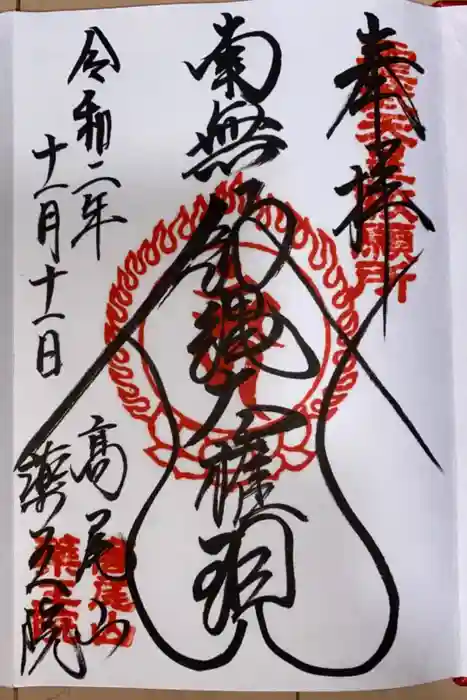 奉拝
南無飯縄大権現
令和二年
十一月十一日
高尾山
薬王院